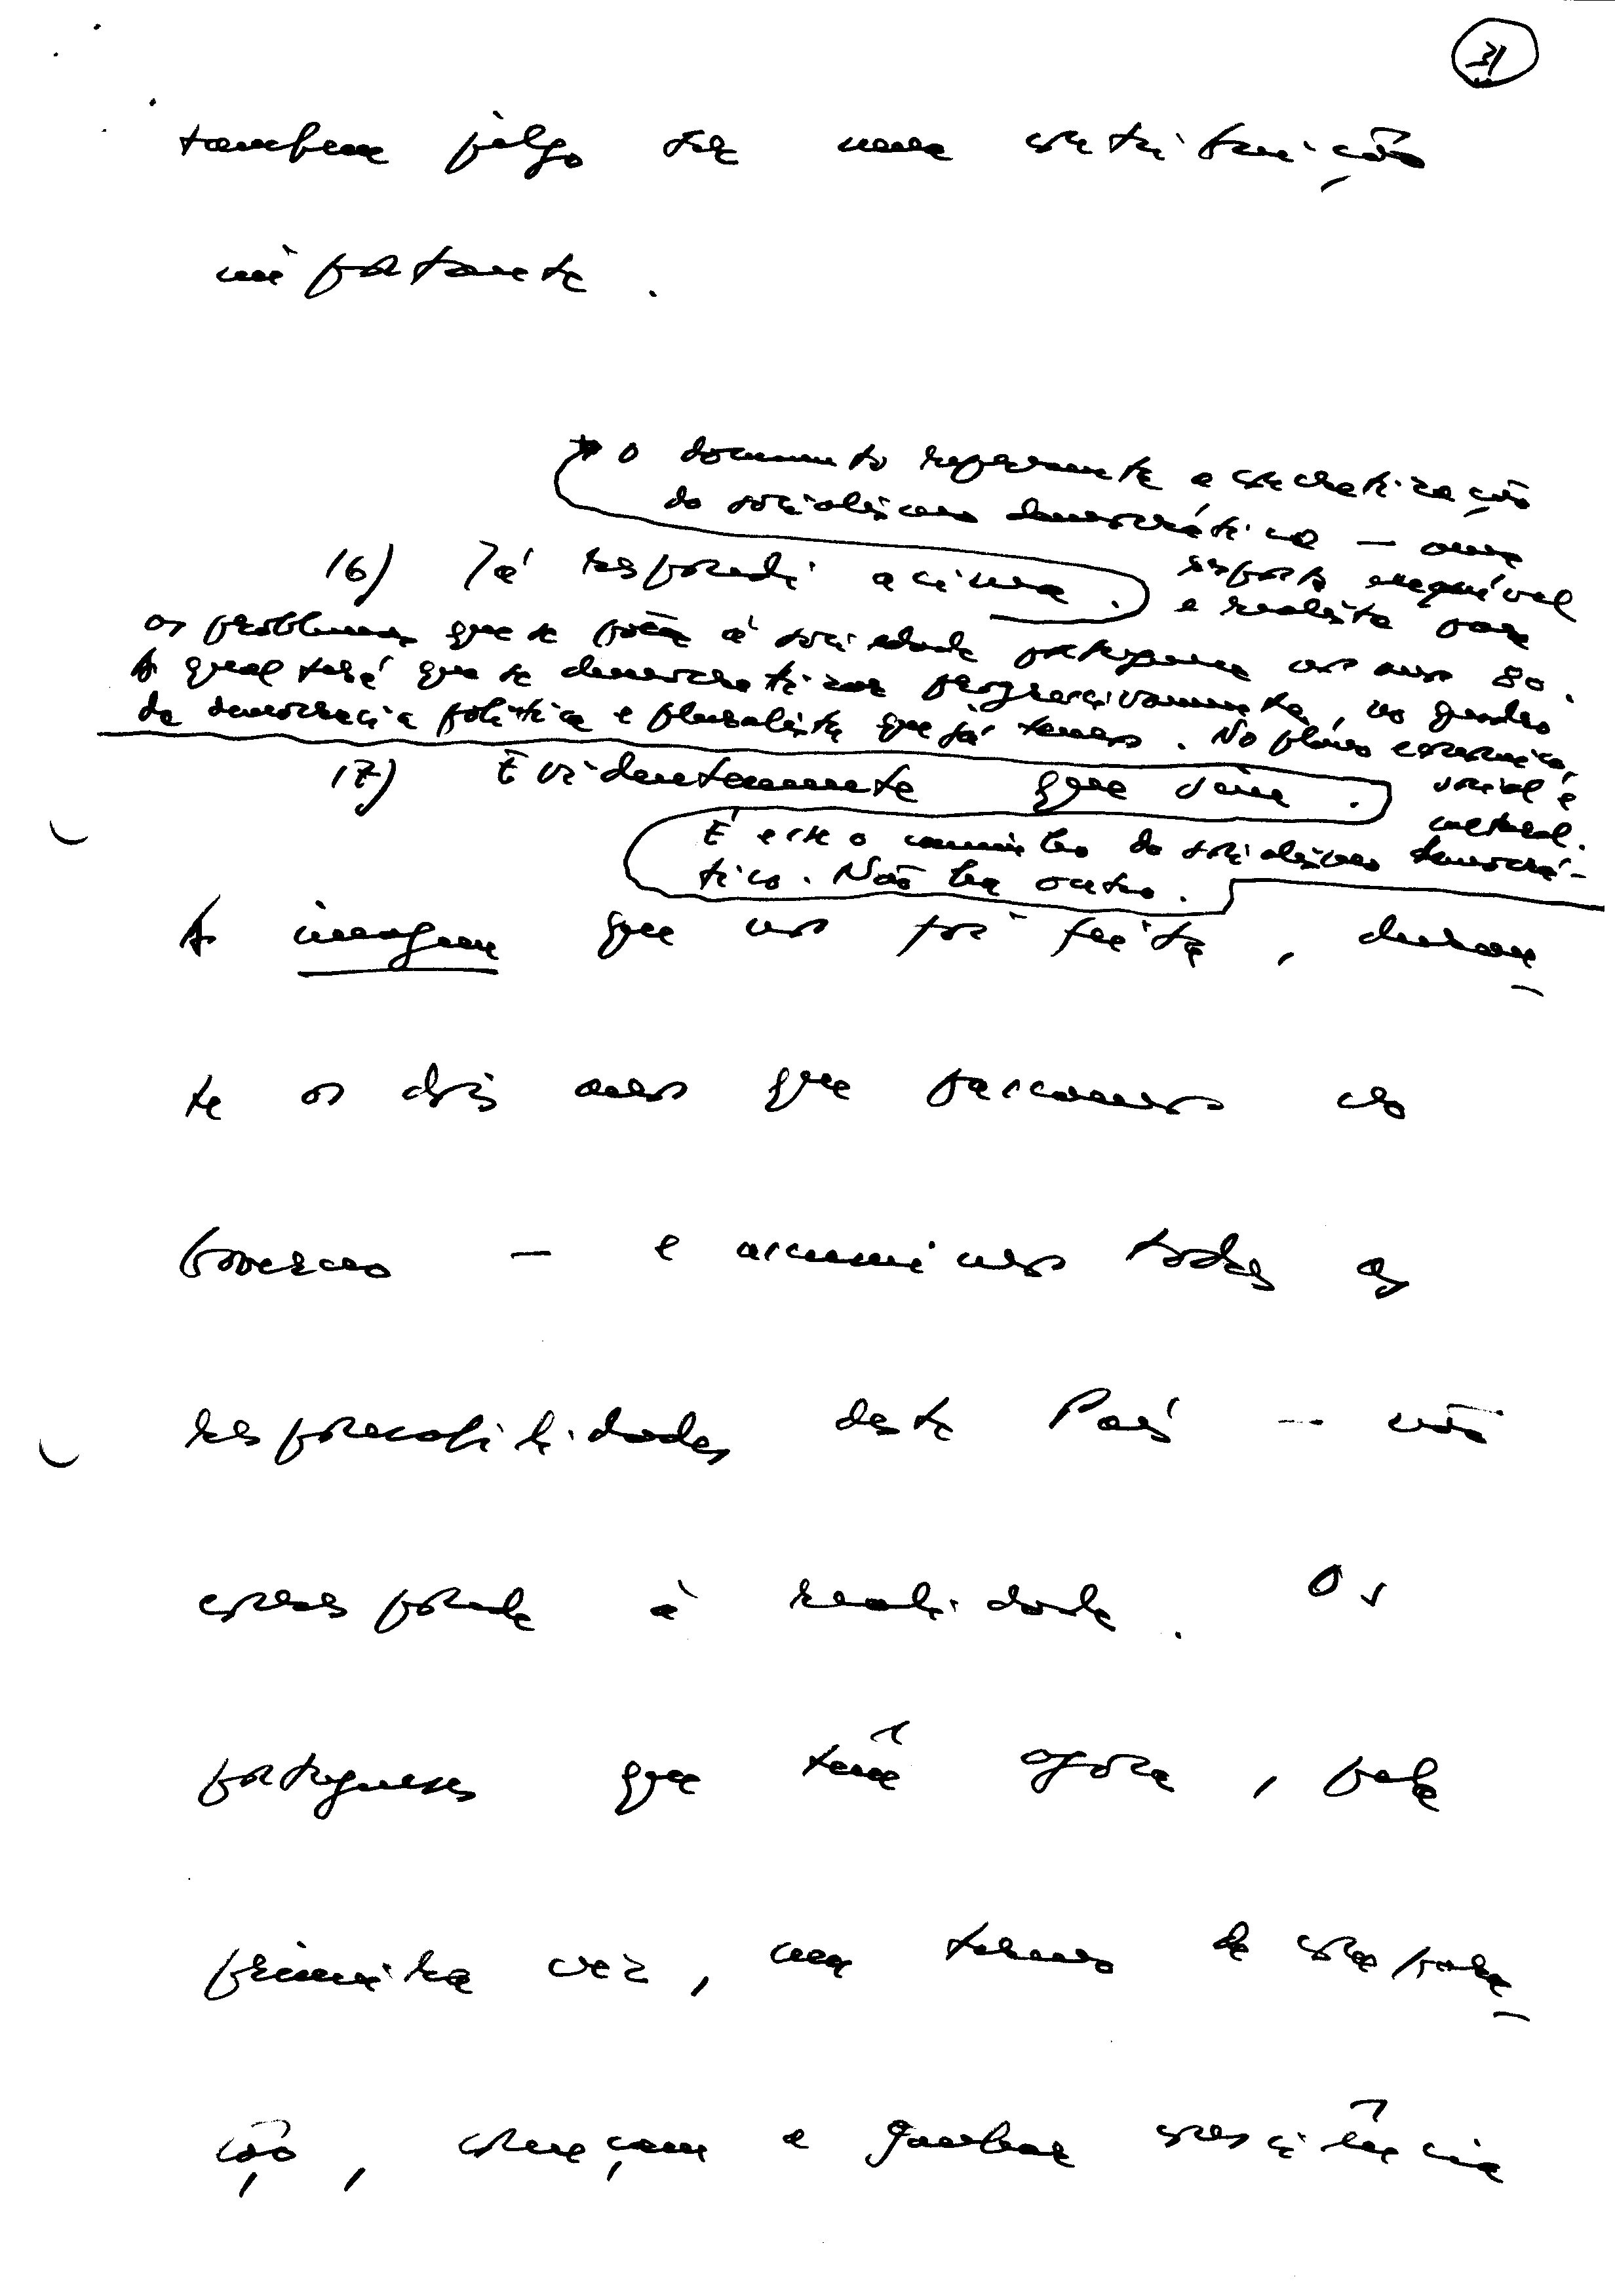 31
também julgo ser uma contribuição
importante.
O documento representa a concretização
do socialismo democrático – uma
16) Já respondi acima. resposta exequível
e realista para
os problemas que se põem à sociedade portuguesa nos anos 80.
A qual terá que se democratizar progressivamente, no quadro
da democracia política e pluralista que já temos. No plano económico,
social e
cultural.
17) Evidentemente que sim.
É este o caminho do socialismo democrá-
tico. Não há outro.
A imagem que nos foi feita, duran-
te os dois anos que passamos no
Governo – e assumimos todas as
responsabilidades deste País – não
corresponde à realidade. Os
portugueses que têm agora, pela
primeira vez, um termo de compara-
ção, começam a ganhar consciência